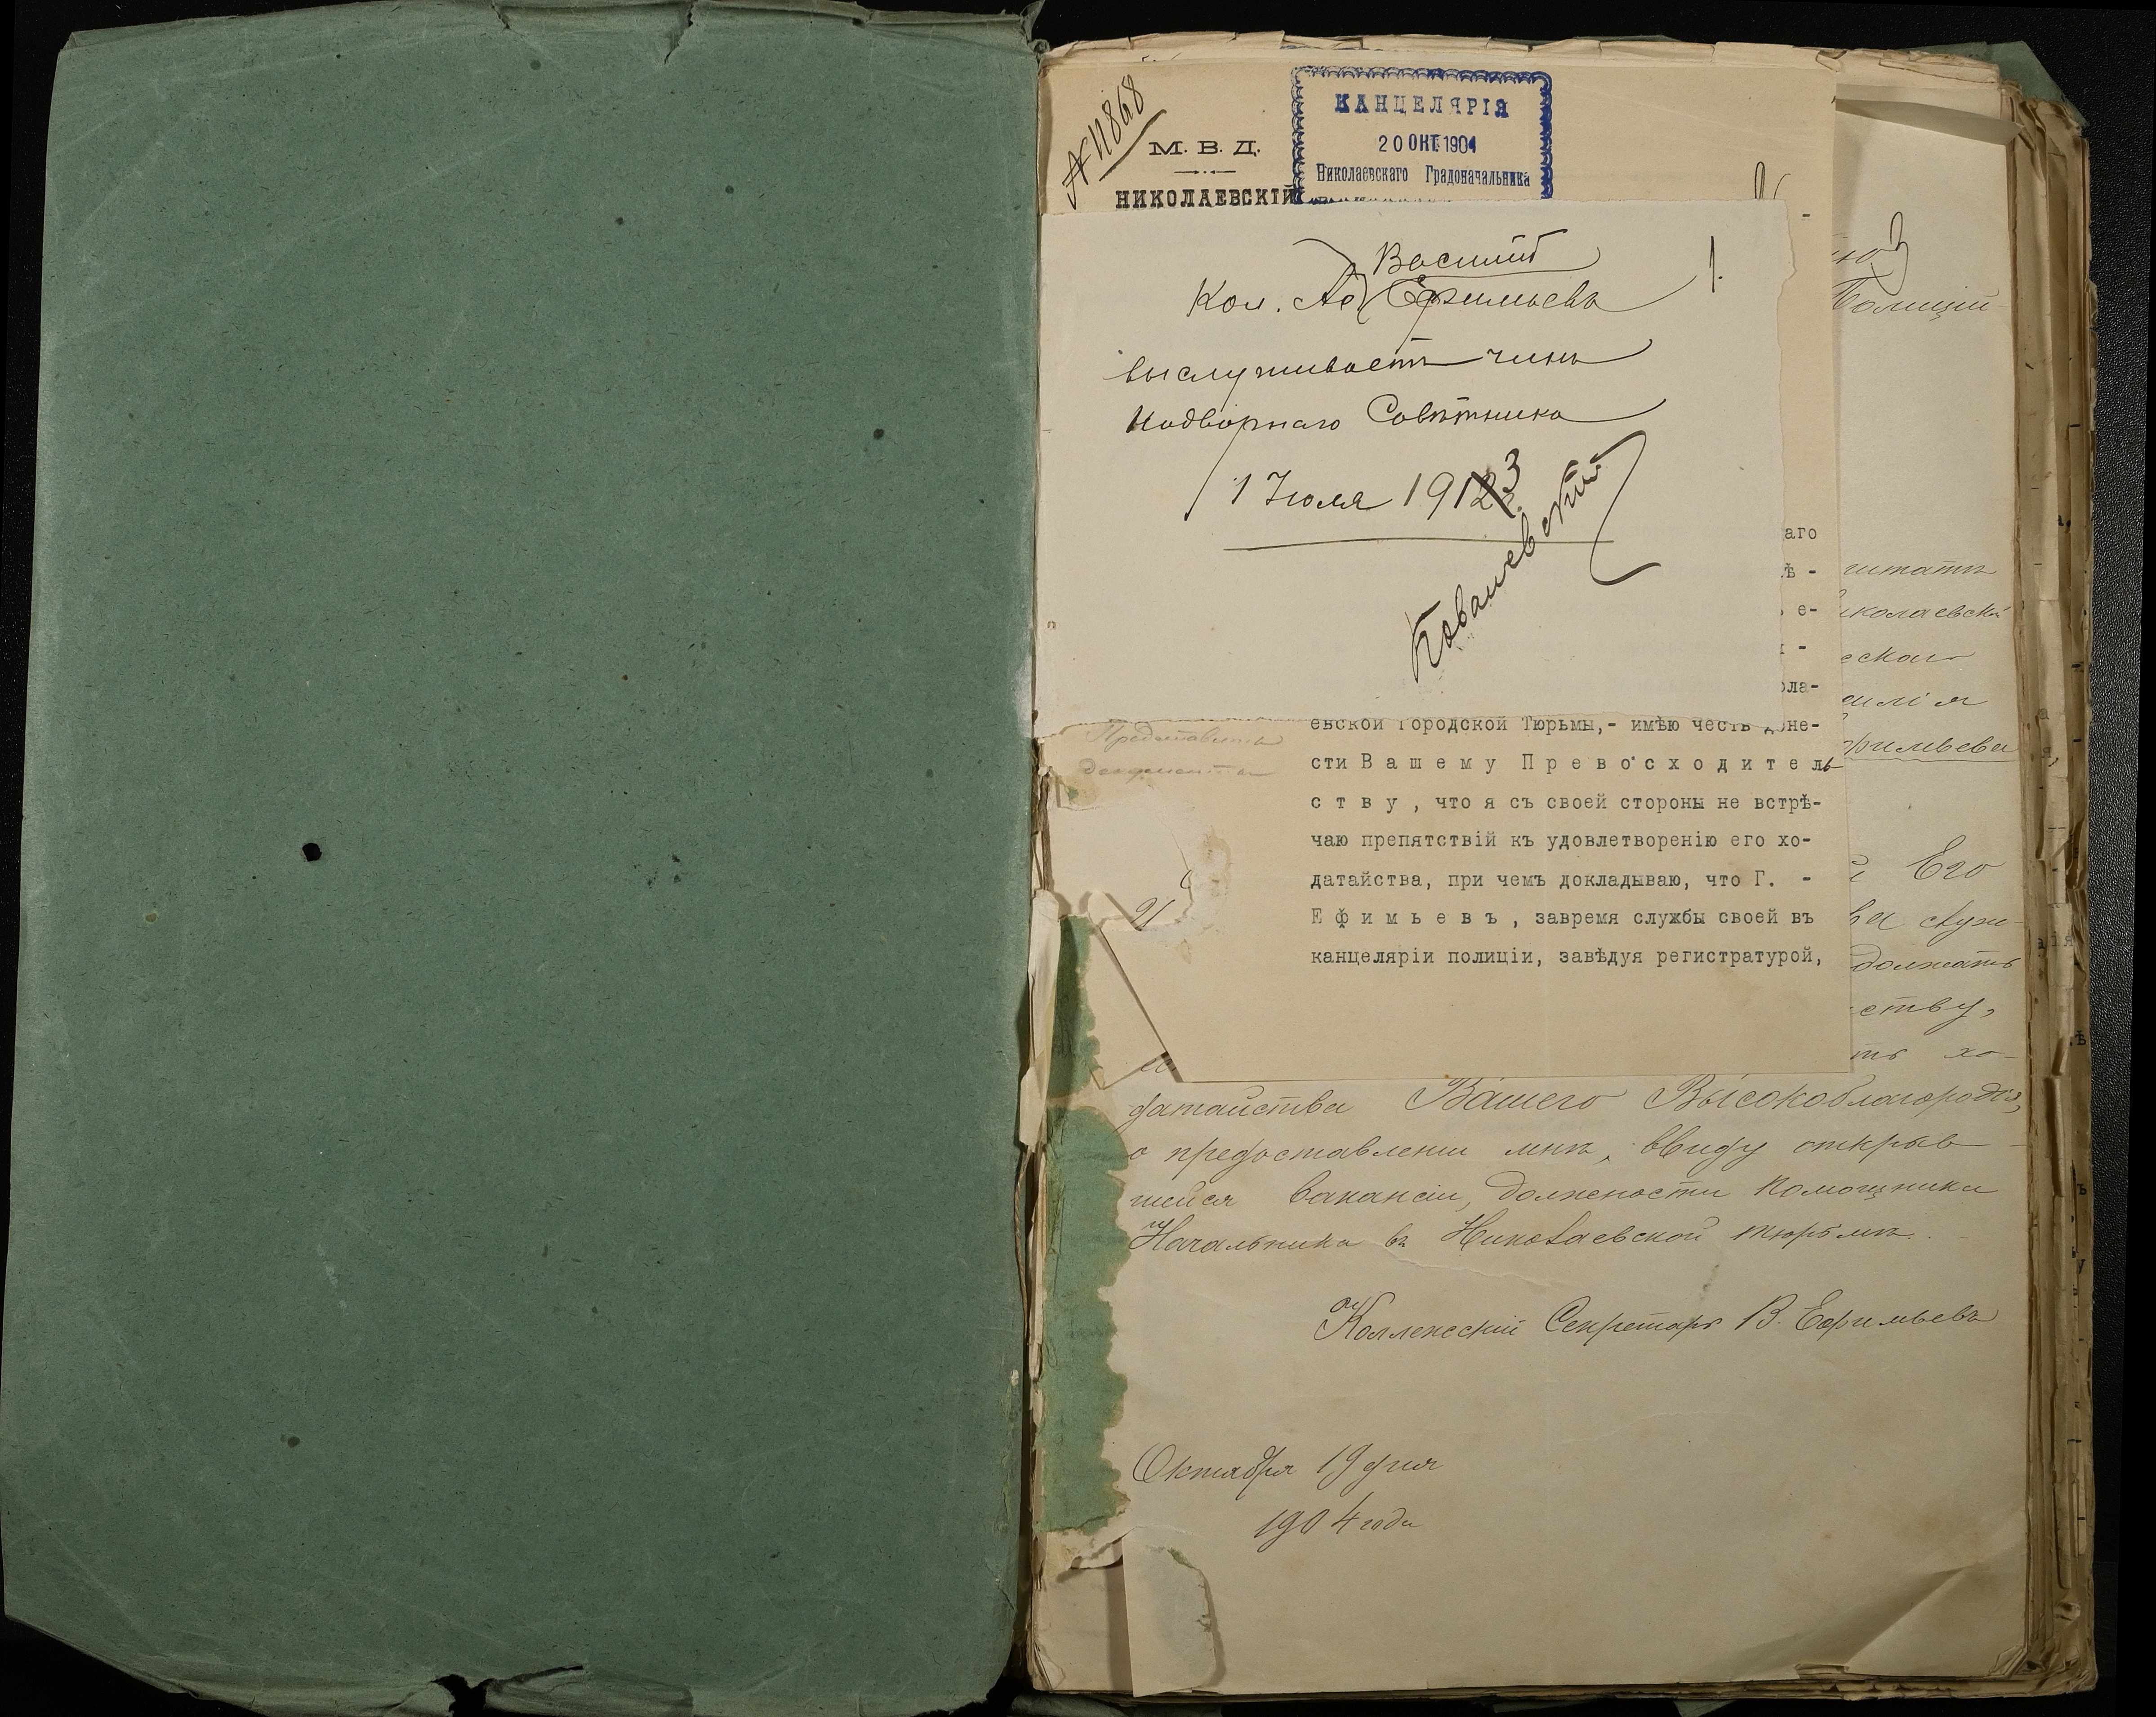 № 11868
М. В. Д.
НИКОЛАЕВСКІЙ
КАНЦЕЛЯРІЯ
20 ОКТ. 1904
Николаевскаго Градоначальника
1.
Василій
Кол. Ас. Ефимьевъ
выслуживаетъ чинъ
Надворнаго Совѣтника
1 Іюля 1913
Ковалевскій
Полиціи
аго
ѣ -
е-
ола-
Представить
документы
евской Городской Тюрьмы,- имѣю честь доне-
сти Вашему Превосходитель
ству, что я съ своей стороны не встрѣ-
чаю препятствій къ удовлетворенію его хо-
датайства, при чемъ докладываю, что Г. -
Ефимьевъ, завремя службы своей въ
канцеляріи полиціи, завѣдуя регистратурой,
читать
иколаевской
еског
филія
фимьева
Его
ва служ-
должать
ству,
ть хо-
датайства Вашего Высокоблагородія,
о предоставленіи мнѣ, ввиду открыв-
шейся вакансіи, должности Помощника
Начальника въ Николаевской тюрьмѣ.
Коллежскій Секретарь В. Ефимьевъ
Октября 19 дня
1904 года